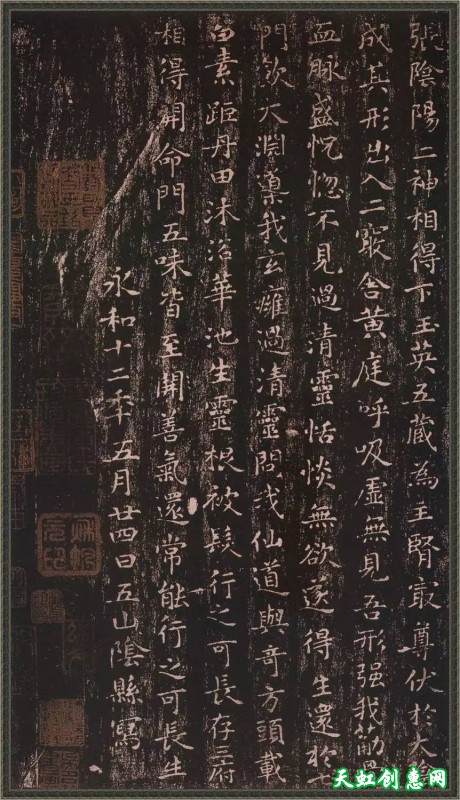 張陰陽二神相得下玉英五藏為主腎最尊伏於大陰
成其形出入二竅舍黃庭呼吸虛無見吾形强我筋骨
血脉盛恍惚不見過清靈恬惔無欲遂得生還於七
門飲大淵導我玄癰過清靈問我仙道與奇方頭載
白素距丹田沐浴華池生靈根被髮行之可長存三府
相得開命門五味皆至開善氣還常能行之可長生
永和十二年五月廿四日五山陰縣寫
天虹创惠网